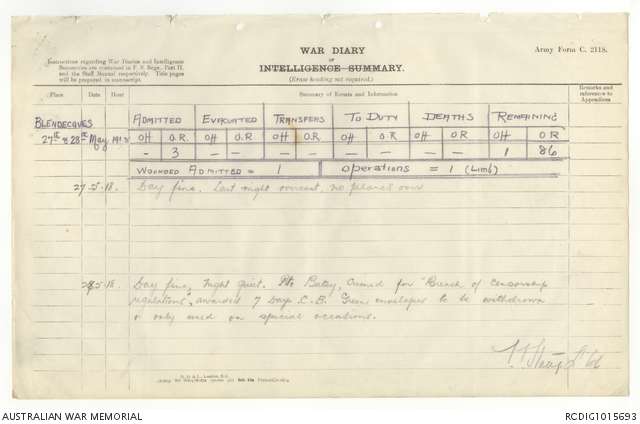 WAR DIARY
of
INTELLIGENCE SUMMARY.
(Erase heading not required.)
Army Form C. 2118.
Instructions regarding War Diaries and Intelligence
Summaries are contained in F. S. Regs., Part II.
and the Staff Manual respectively. Title pages
will be prepared in manuscript.
Place Date Hour Summary of Events and Information Remarks and
references to
Appendices
BLENDECQUES
27th & 28th May 1918
ADMITTED EVACUATED TRANSFERS TO DUTY DEATHS REMAINING
Off O.R. Off O.R. Off O.R. Off O.R. Off O.R. Off O.R.
- 3 - - - - - - - - 1 86
WOUNDED ADMITTED = 1 Operations = 1 (Limb)
27.5.18. Day fine. Last night overcast, no planes over
28.5.18. Day fine, night quiet. Pte Batey, crimed for "Breach of censorship
regulations", awarded 7 Days C.B. Green envelopes to be withdrawn
& only used on special occasions.
AUSTRALIAN WAR MEMORIAL
RCDIG1015693